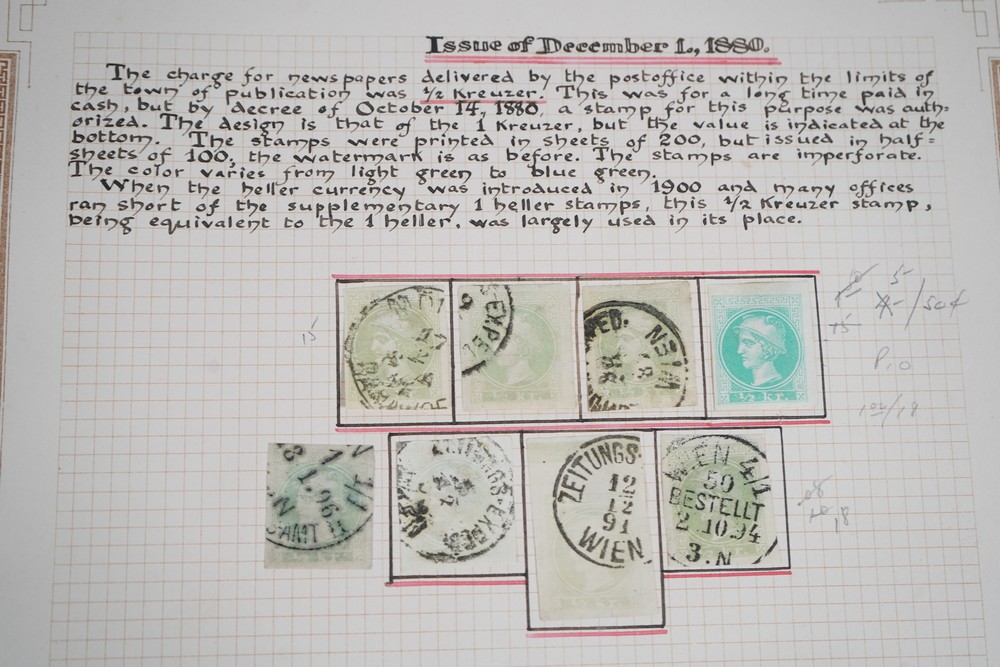 Issue of December 1., 1880.
The charge for newspapers delivered by the postoffice within the limits of
the town of publication was ½ Kreuzer. This was for a long time paid in
cash, but by decree of October 14, 1880, a stamp for this purpose was auth-
orized. The design is that of the 1 Kreuzer, but the value is indicated at the
bottom. The stamps were printed in sheets of 200, but issued in half-
sheets of 100, the watermark is as before. The stamps are imperforate.
The color varies from light green to blue green.
When the heller currency was introduced in 1900 and many offices
ran short of the supplementary 1 heller stamps, this ½ Kreuzer stamp,
being equivalent to the 1 heller, was largely used in its place.
15
EXPE
WIEN
½ KR.
5
P.O
ZEITUNGS-EXPED.
ZEITUNGS-
12
12
91
WIEN
WIEN 4/1
50
BESTELLT
2.10.94
3.N
18